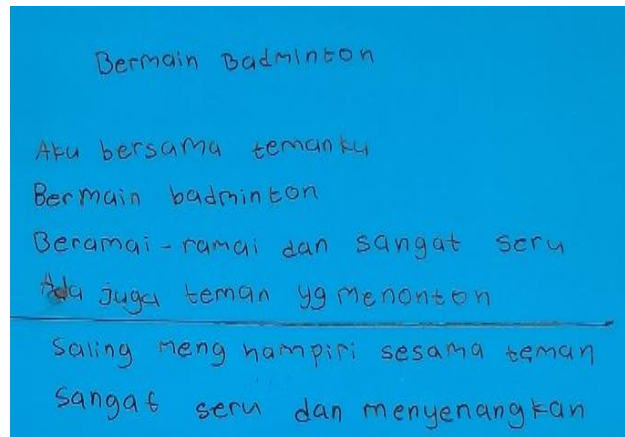 Bermain Badminton
Aku bersama temanku
Bermain badminton
Beramai-ramai dan sangat seru
Ada juga teman yg menonton
Saling meng hampiri sesama teman
Sangat seru dan menyenangkan